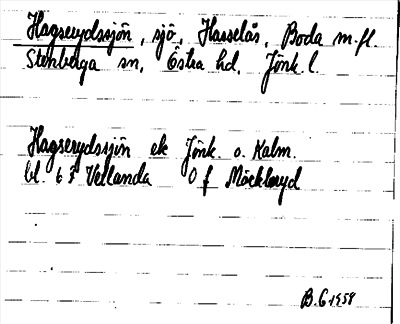 Hagserydssjön, sjö, Hasselås, Boda m.fl.
Stenberga sn, Östra hd, Jönk. l.
Hagserydssjön ek Jönk. o. Kalm.
bl. 63 Vetlanda O f Möckleryd
B.G 1958